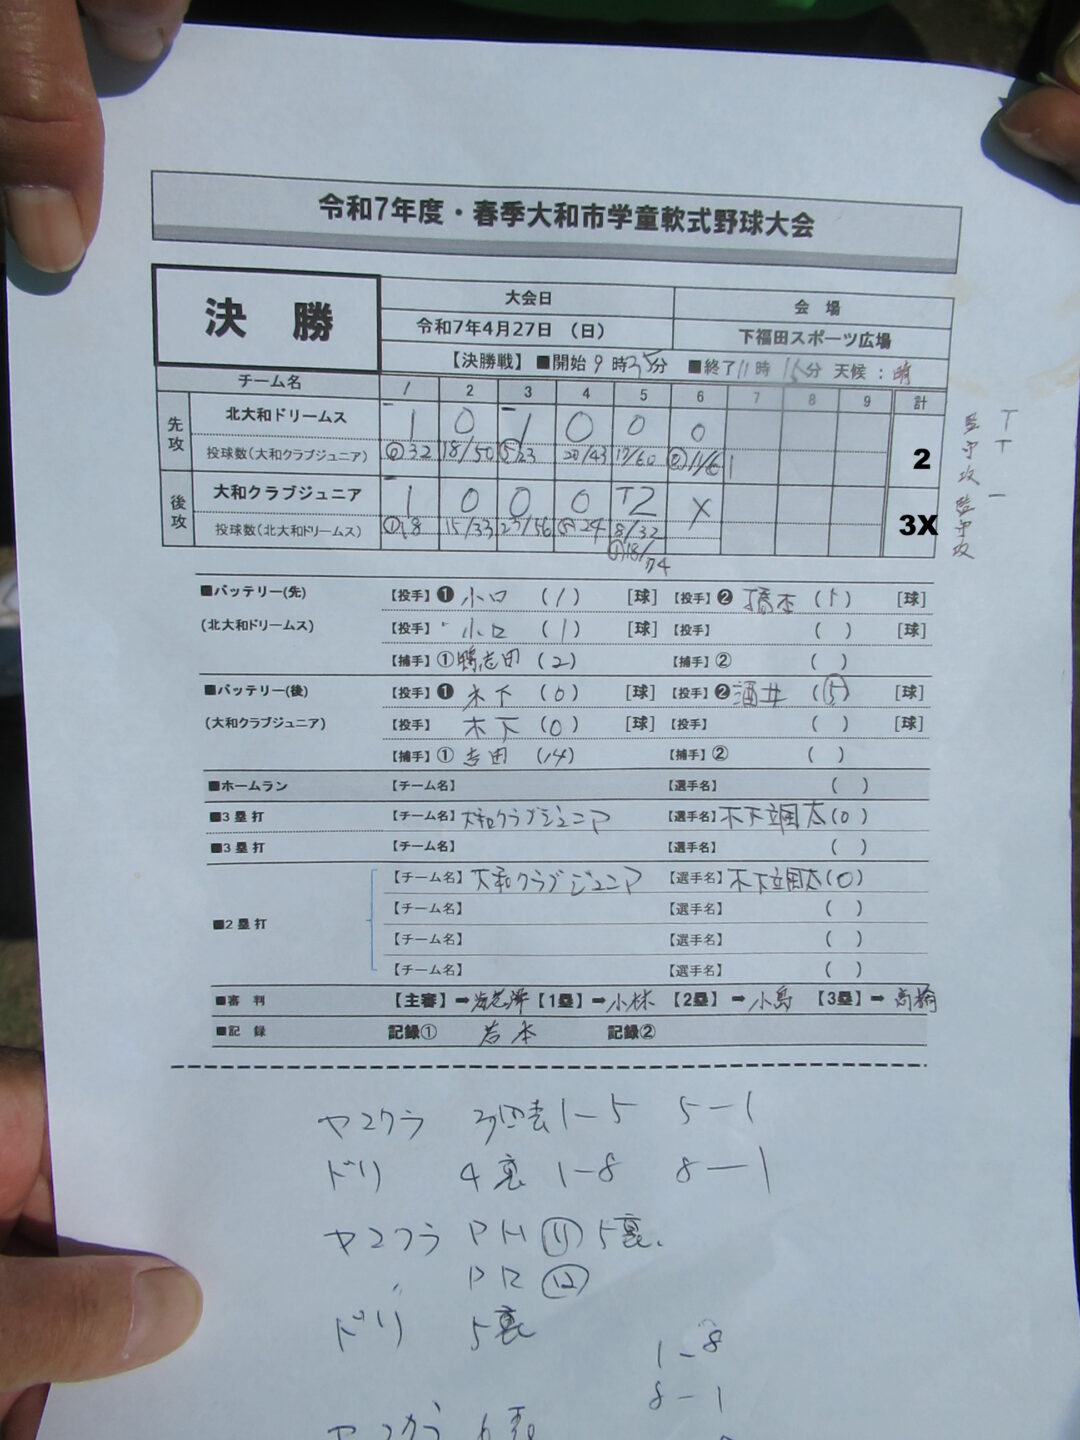 令和7年度・春季大和市学童軟式野球大会
決 勝
大会日 会 場
令和7年4月27日 (日) 下福田スポーツ広場
【決勝戦】 ■開始 9 時35分 ■終了 11 時 15分 天候 : 晴
チーム名 1 2 3 4 5 6 7 8 9 計
先攻 北大和ドリームス 1 0 1 0 0 0 2
投球数(大和クラブジュニア) 32 18/50 ⑤23 20/43 17/60
後攻 大和クラブジュニア 1 0 0 0 2 X 3X
投球数(北大和ドリームス) 18 15/33 23/56 24 8/32
①18/74
監 守 攻 監 守 攻
■バッテリー(先) 【投手】❶ 小口 (1) [球] 【投手】❷ 橋本 (1) [球]
(北大和ドリームス) 【投手】 小口 (1) [球] 【投手】 ( ) [球]
【捕手】① 鴨志田 (2) 【捕手】② ( )
■バッテリー(後) 【投手】❶ 木下 (0) [球] 【投手】❷ 酒井 (5) [球]
(大和クラブジュニア) 【投手】 木下 (0) [球] 【投手】 ( ) [球]
【捕手】① 吉田 (14) 【捕手】② ( )
■ホームラン 【チーム名】 【選手名】 ( )
■3塁打 【チーム名】大和クラブジュニア 【選手名】木下颯太(0)
■3塁打 【チーム名】 【選手名】 ( )
【チーム名】大和クラブジュニア 【選手名】木下颯太(0)
【チーム名】 【選手名】 ( )
■2塁打
【チーム名】 【選手名】 ( )
【チーム名】 【選手名】 ( )
■審 判 【主審】➡海老澤 【1塁】➡小林 【2塁】➡小島 【3塁】➡高橋
■記 録 記録① 岩本 記録②
ヤマクラ 3回表 1-5 5-1
ドリ 4裏 1-8 8-1
ヤマクラ PH ⑪ 5裏.
〃 PR ⑫
ドリ 5裏
1-8
8-1
ヤマクラ 6表